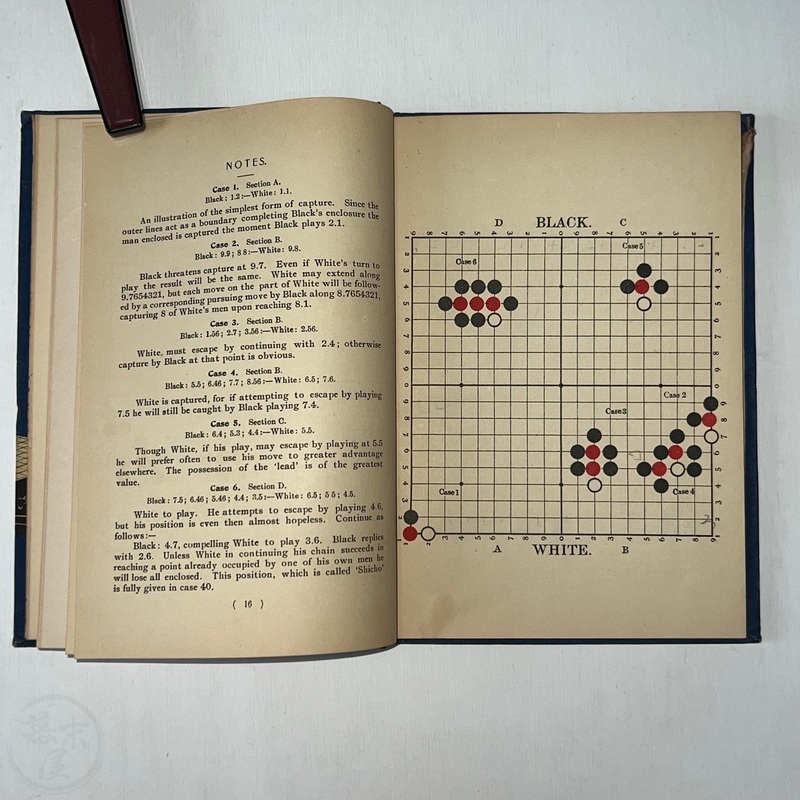 NOTES.
Case 1. Section A.
Black: 1.2:—White: 1.1.
An illustration of the simplest form of capture. Since the
outer lines act as a boundary completing Black's enclosure the
man enclosed is captured the moment Black plays 2.1.
Case 2. Section B.
Black: 9.9; 8 8:—White: 9.8.
Black threatens capture at 9.7. Even if White's turn to
play the result will be the same. White may extend along
9.7654321, but each move on the part of White will be follow-
ed by a corresponding pursuing move by Black along 8.7654321,
capturing 8 of White's men upon reaching 8.1.
Case 3. Section B.
Black: 1.56; 2.7; 3.56:—White: 2.56.
White, must escape by continuing with 2.4; otherwise
capture by Black at that point is obvious.
Case 4. Section B.
Black: 5.5; 6.46; 7.7; 8.56:—White: 6.5; 7.6.
White is captured, for if attempting to escape by playing
7.5 he will still be caught by Black playing 7.4.
Case 5. Section C.
Black: 6.4; 5.3; 4.4:—White: 5.5.
Though White, if his play, may escape by playing at 5.5
he will prefer often to use his move to greater advantage
elsewhere. The possession of the 'lead' is of the greatest
value.
Case 6. Section D.
Black: 7.5; 6.46; 5.46; 4.4; 3.5:—White: 6.5; 5 5; 4.5.
White to play. He attempts to escape by playing 4.6,
but his position is even then almost hopeless. Continue as
follows:—
Black: 4.7, compelling White to play 3.6. Black replies
with 2.6. Unless White in continuing his chain succeeds in
reaching a point already occupied by one of his own men he
will lose all enclosed. This position, which is called 'Shicho'
is fully given in case 40.
( 16 )
D BLACK. C
9 8 7 6 5 4 3 2 1 0 9 8 7 6 5 4 3 2 1
Case 5
Case 6
2
3
4
5
6
7
8
9
0
Case 2
9
8
Case 3
7
6
5
Case 1
Case 4
4
3
2
1 2 3 4 5 6 7 8 9 0 1 2 3 4 5 6 7 8 9
A WHITE. B